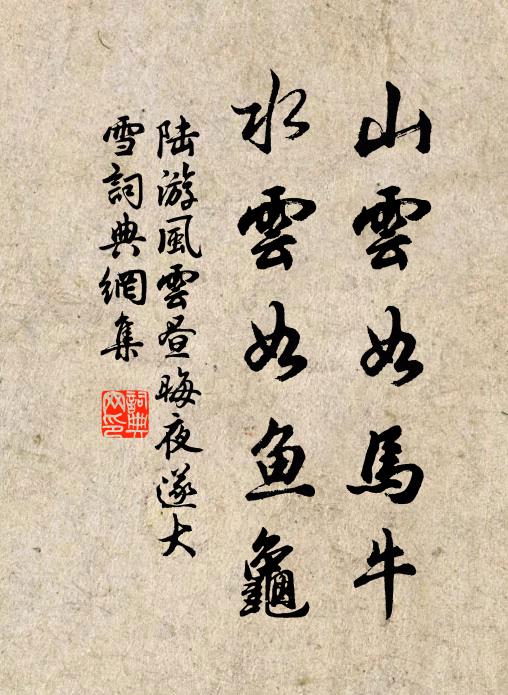 山雲如馬牛
水雲如鱼龜
陆游風雲昼晦夜遂大
雪詞典網集
詞典
网印